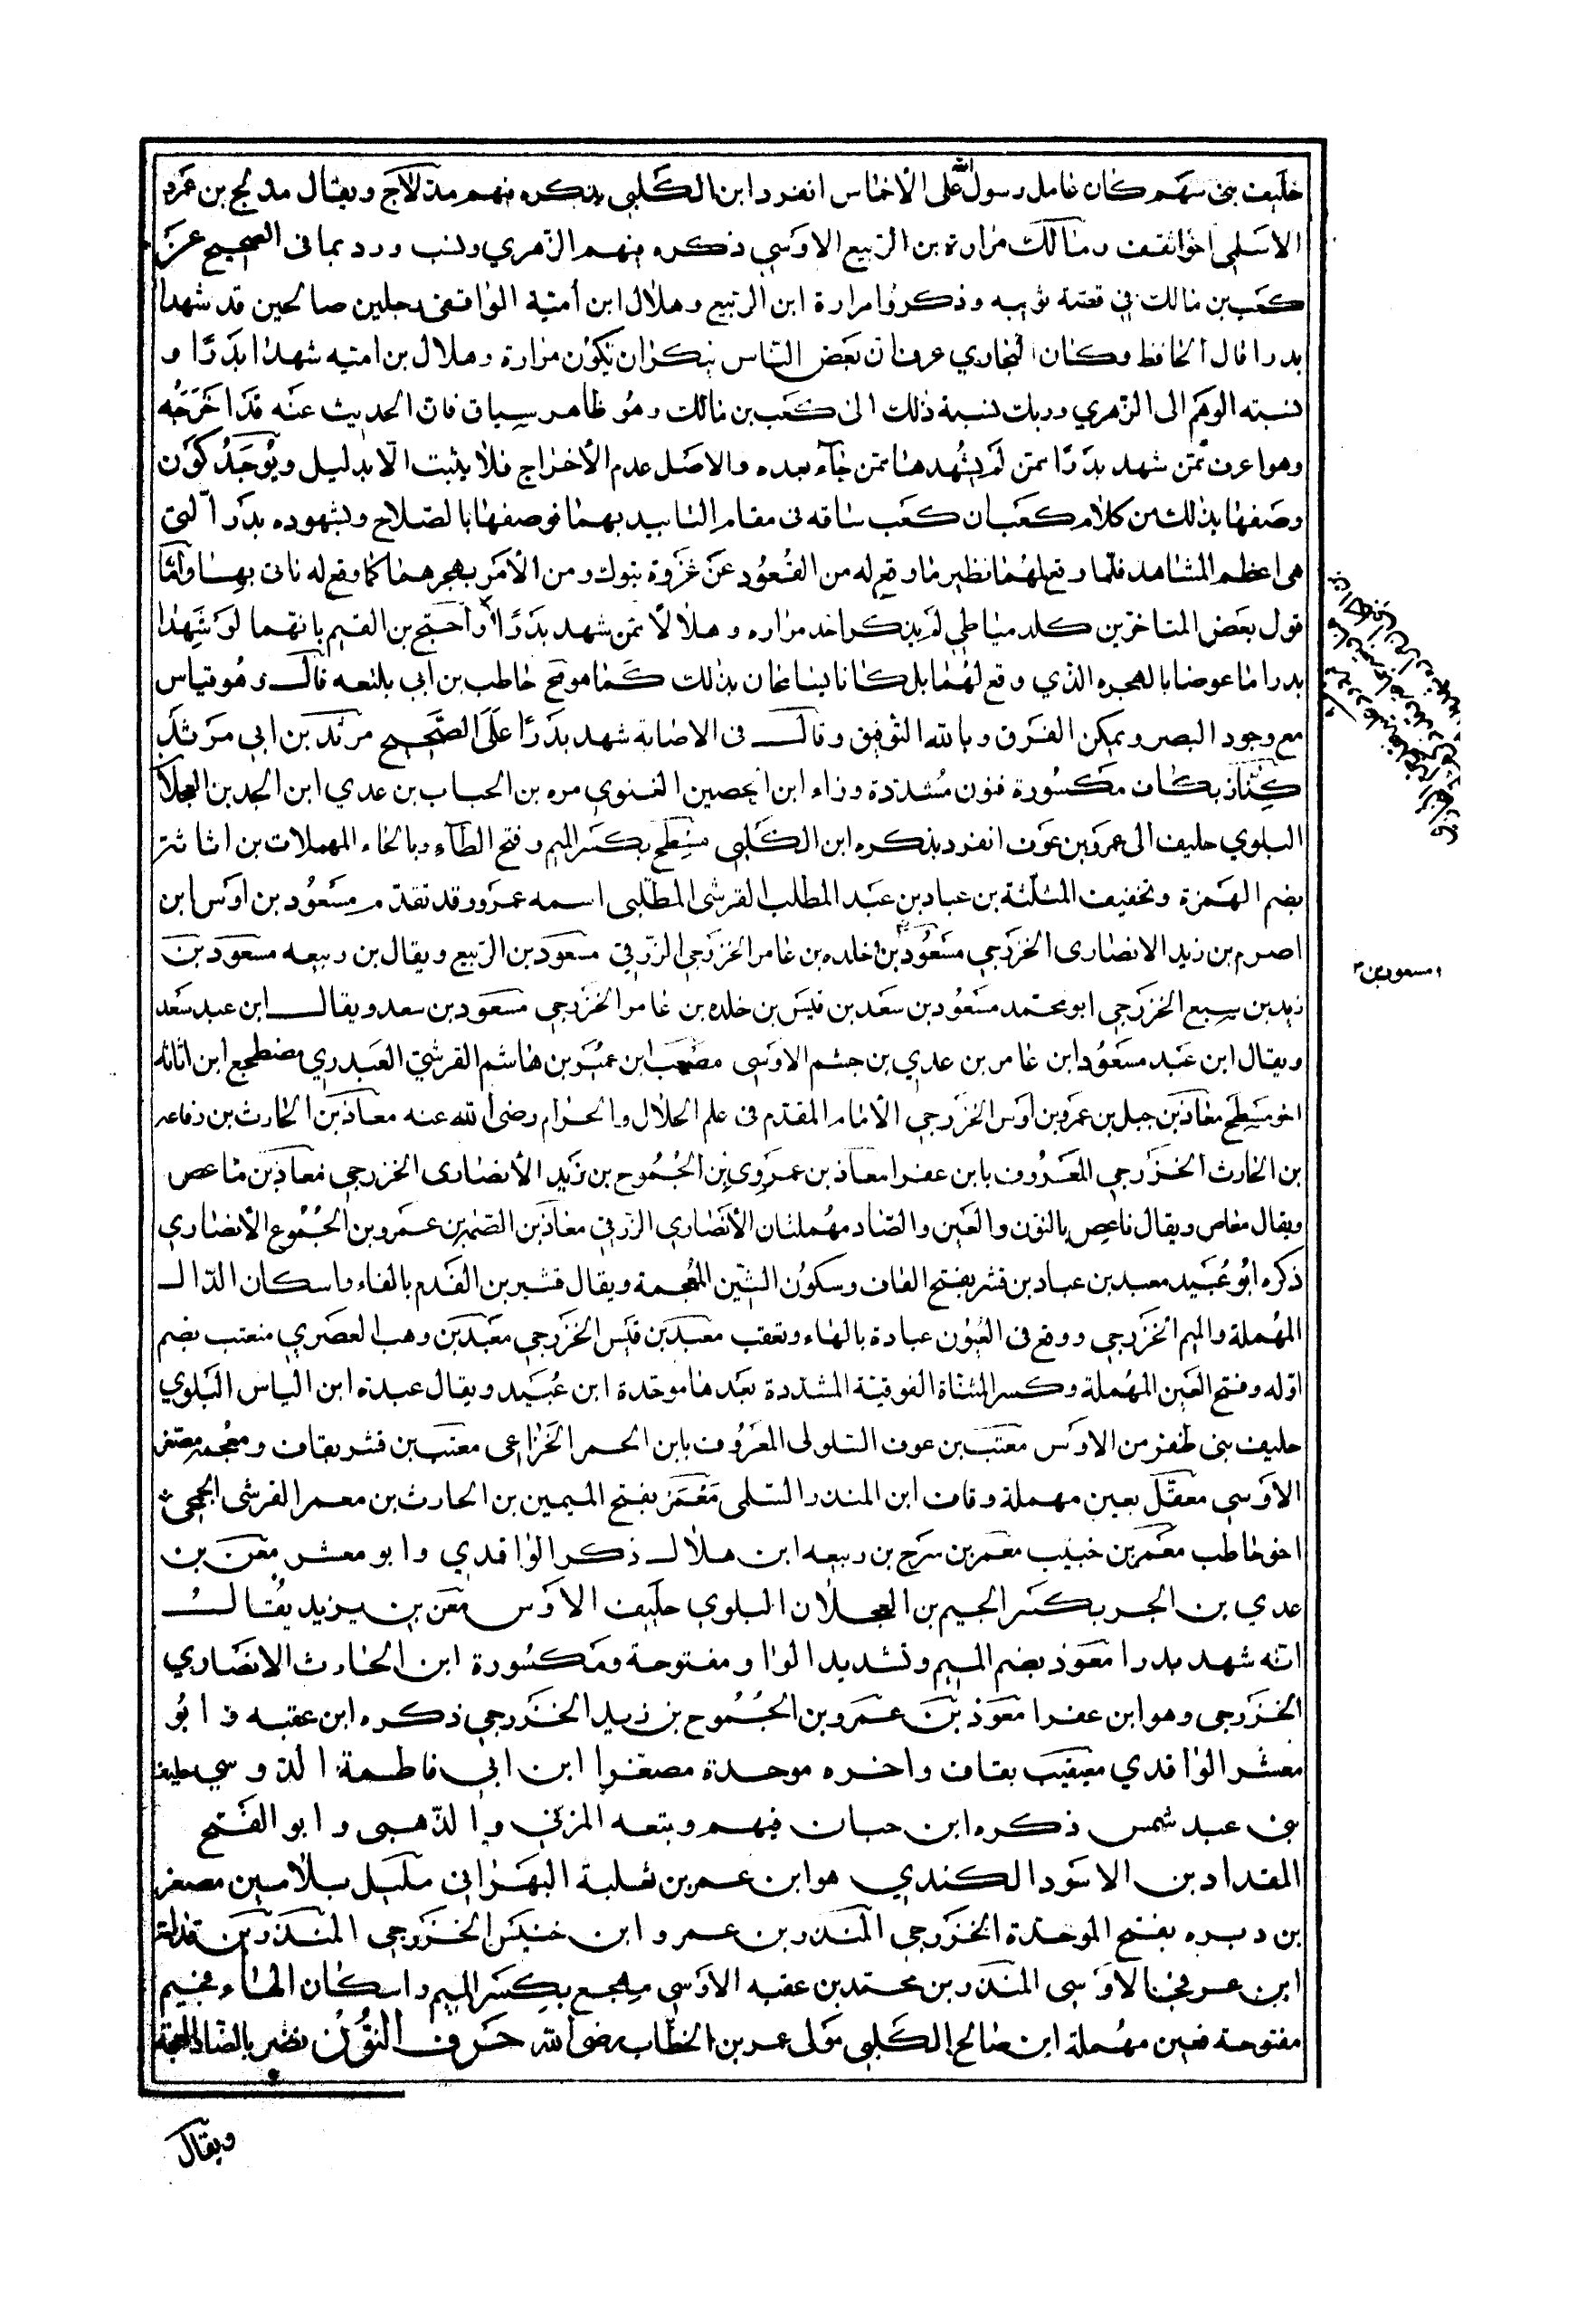 حليف بني سهم كان عامل رسول الله على الأخماس انفرد ابن الكلبي بذكره فيهم مدلاج ويقال مدلج بن عمرو
الاسلمي اخو ثقف ومالك مرارة بن الربيع الاوسي ذكره فيهم الزهري ونسب ورد بما في الصحيح عن
كعب بن مالك في قصة توبيه وذكروا مرارة ابن الربيع وهلال ابن أمية الواقفي رجلين صالحين قد شهدا
بدرا قال الحافظ وكان البخاري عرف ان بعض الناس ينكر ان يكون مرارة وهلال بن امية شهدا بدرًا و
نسبته الوهم الى الزهري ورد بان نسبة ذلك الى كعب بن مالك وهو ظاهر سياق فان الحديث عنه قد اخرجه
وهو اعرف بمن شهد بدرًا ممن لم يشهدها ممن جآء بعده والاصل عدم الأخراج فلا يثبت الّا بدليل ويوجد كون
وصفها بذلك من كلام كعب ان كعب ساقه في مقام التاييد بهما فوصفها بالصّلاح وبشهوده بدرا التي
هي اعظم المشاهد فلما وقع لهما نظير ما وقع له من القعود عن غزوة تبوك ومن الأمر بهجرهما كما وقع له تاتى بهما وأمّا
قول بعض المتاخرين كلدمياطي لم يذكر احد مراره وهلالا ممن شهد بدرًا واحتج بن القيم بانهما لو شهدا
بدرا ما عوضا بالهجره الذي وقع لهما بل كانا يسامحان بذلك كما سومح حاطب بن ابي بلتعه قال وهو قياس
مع وجود البصر ويمكن الفرق وبالله التوفيق وقال في الاصابة شهد بدرًا على الصحيح مرثد بن ابي مرثد
كنّاز بكاف مكسورة فنون مشددة وزاء ابن الحصين الغنوي مره بن الحباب بن عدي ابن الجد بن العجلا
البلوي حليف الى عمرو بن عوف انفرد بذكره ابن الكلبي مسطح بكسر الميم وفتح الطآء وبالحاء المهملات بن اثاثة
بضم الهمزة وتخفيف المثلثة بن عباد بن عبد المطلب القرشي المطلبى اسمه عمرو وقد تقدم مسعود بن اوس ابن
اصرم بن زيد الانصارى الخزرجي مسعود بن خلده بن عامر الخزرجي الزرقي مسعود بن الربيع ويقال بن ربيعه مسعود بن
زيد بن سبيع الخزرجي ابو محمد مسعود بن سعد بن قيس بن خلده بن عامر الخزرجي مسعود بن سعد ويقال ابن عبد سعد
ويقال ابن عبد مسعود ابن عامر بن عدي بن جشم الاوسى مصعب ابن عمير بن هاشم القرشي العبدري مضطجع ابن اثاثه
اخو مسطح معاذ بن جبل بن عمرو بن أوس الخزرجي الأمام المقدم في علم الحلال والحرام رضى الله عنه معاذ بن الحارث بن رفاعه
بن الحارث الخزرجي المعروف بابن عفرا معاذ بن عمرو بن الجموح بن زيد الأنصارى الخزرجي معاذ بن ماعص
ويقال معاص ويقال ناعص بالنون والعين والصاد مهملتان الأنصاري الزرقي معاذ بن الصمه بن عمرو بن الجموع الأنصاري
ذكره ابو عبيد معبد بن عباد بن قشر بفتح القاف وسكون الشين المعجمة ويقال قشير بن الفدم بالفاء واسكان الدال
المهملة والميم الخزرجي ووقع في العيون عبادة بالهاء وتعقب معبد بن قيس الخزرجي معبد بن وهب العصري معتب بضم
اوله وفتح العين المهملة وكسر المثناة الفوقية المشددة بعدها موحدة ابن عبيد ويقال عبدة ابن الياس البلوي
حليف بني ظفر من الاوس معتب بن عوف السلولى المعروف بابن الحمر الخزاعى معتب بن قشر بقاف ومعجمه مصغر
الاوسي معقل بعين مهملة وقاف ابن المنذر السلمى معمر بفتح الميمين بن الحارث بن معمر القرشى الجمحي
اخو حاطب معمر بن خبيب معمر بن سرح بن ربيعه ابن هلال ذكر الواقدي وابو معشر معن بن
عدي بن الجر بكسر الجيم بن العجلان البلوي حليف الاوس معن بن يزيد يقال
انه شهد بدرا معوذ بضم الميم وتشديد الواو مفتوحة ومكسورة ابن الحارث الانصاري
الخزرجى وهو ابن عفرا معوذ بن عمرو بن الجموح بن زيد الخزرجي ذكره ابن عقبه وابو
معشر الواقدي معيقيب بقاف واخره موحدة مصغرا ابن ابي فاطمة الدوسي حليف
بني عبد شمس ذكره ابن حبان فيهم وتبعه المزني والذهبى وابو الفتح
المقداد بن الاسود الكندي هو ابن عمر بن ثعلبة البهرانى مليل بلامين مصغر
بن وبره بفتح الموحدة الخزرجي المنذر بن عمرو ابن خنيس الخزرجى المنذر بن قدامة
ابن عرفجا الاوسى المنذر بن محمد بن عقبه الاوسي مهجع بكسر الميم واسكان الهاء فجيم
مفتوحة فعين مهملة ابن صالح الكلبى مولى عمر بن الخطاب رضى الله حرف النون نضر بالضاد المعجمة
مسعود بن
ويقال